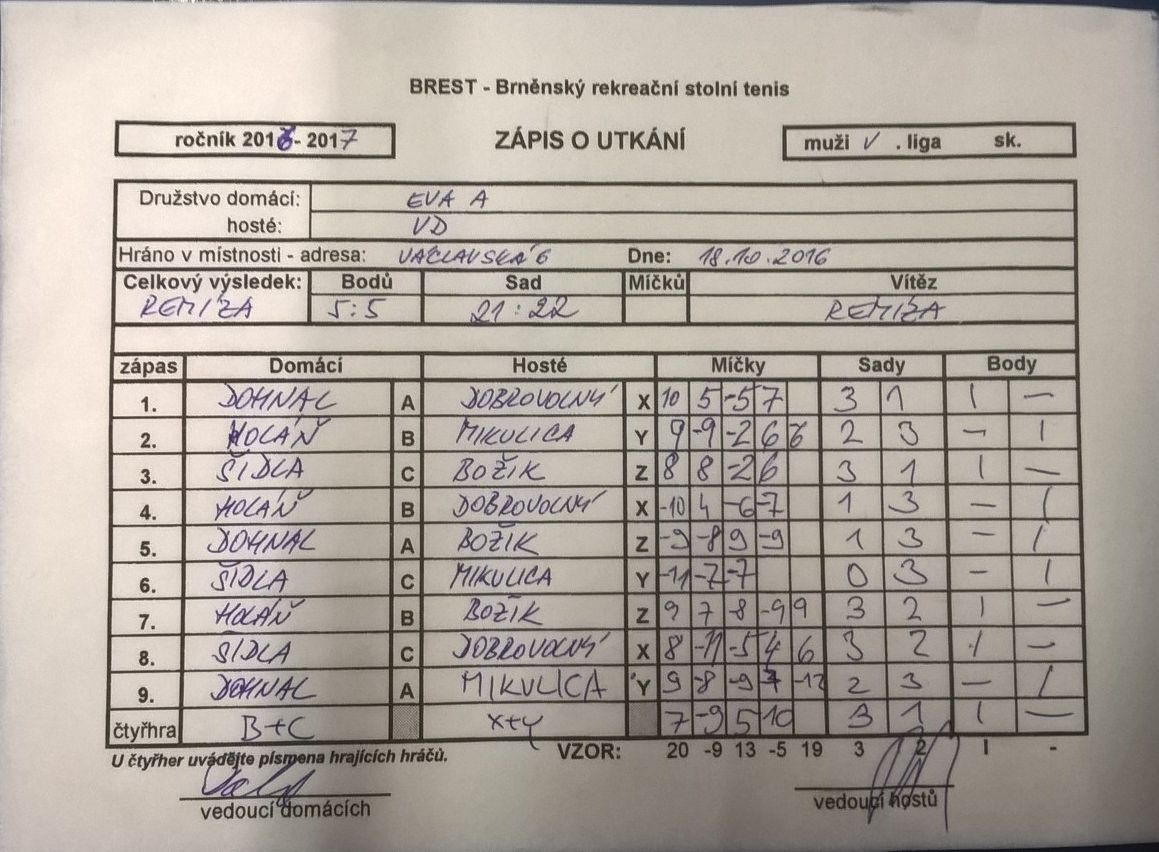 BREST - Brněnský rekreační stolní tenis
ročník 2016 - 2017 ZÁPIS O UTKÁNÍ muži V . liga sk.
Družstvo domácí: EVA A
hosté: VD
Hráno v místnosti - adresa: VÁCLAVSKÁ 6 Dne: 18.10.2016
Celkový výsledek: Bodů Sad Míčků Vítěz
REMÍZA 5:5 21:22 REMÍZA
zápas Domácí Hosté Míčky Sady Body
1. DOHNAL A DOBROVOLNÝ X 10 5 -5 7 3 1 1 -
2. HOLÁŇ B MIKULICA Y 9 -9 -2 6 2 3 - 1
3. ŠÍDLA C BOŽÍK Z 8 8 -2 6 3 1 1 -
4. HOLÁŇ B DOBROVOLNÝ X -10 4 -6 -7 1 3 - 1
5. DOHNAL A BOŽÍK Z -9 -8 9 -9 1 3 - 1
6. ŠÍDLA C MIKULICA Y -11 -7 -7 0 3 - 1
7. HOLÁŇ B BOŽÍK Z 9 7 -8 -9 9 3 2 1 -
8. ŠÍDLA C DOBROVOLNÝ X 8 -11 -5 4 6 3 2 1 -
9. DOHNAL A MIKULICA Y 9 -8 -9 7 -12 2 3 - 1
čtyřhra B+C X+Y 7 -9 5 10 3 1 1 -
U čtyřher uvádějte písmena hrajících hráčů. VZOR: 20 -9 13 -5 19 3 2 1 -
vedoucí domácích vedoucí hostů